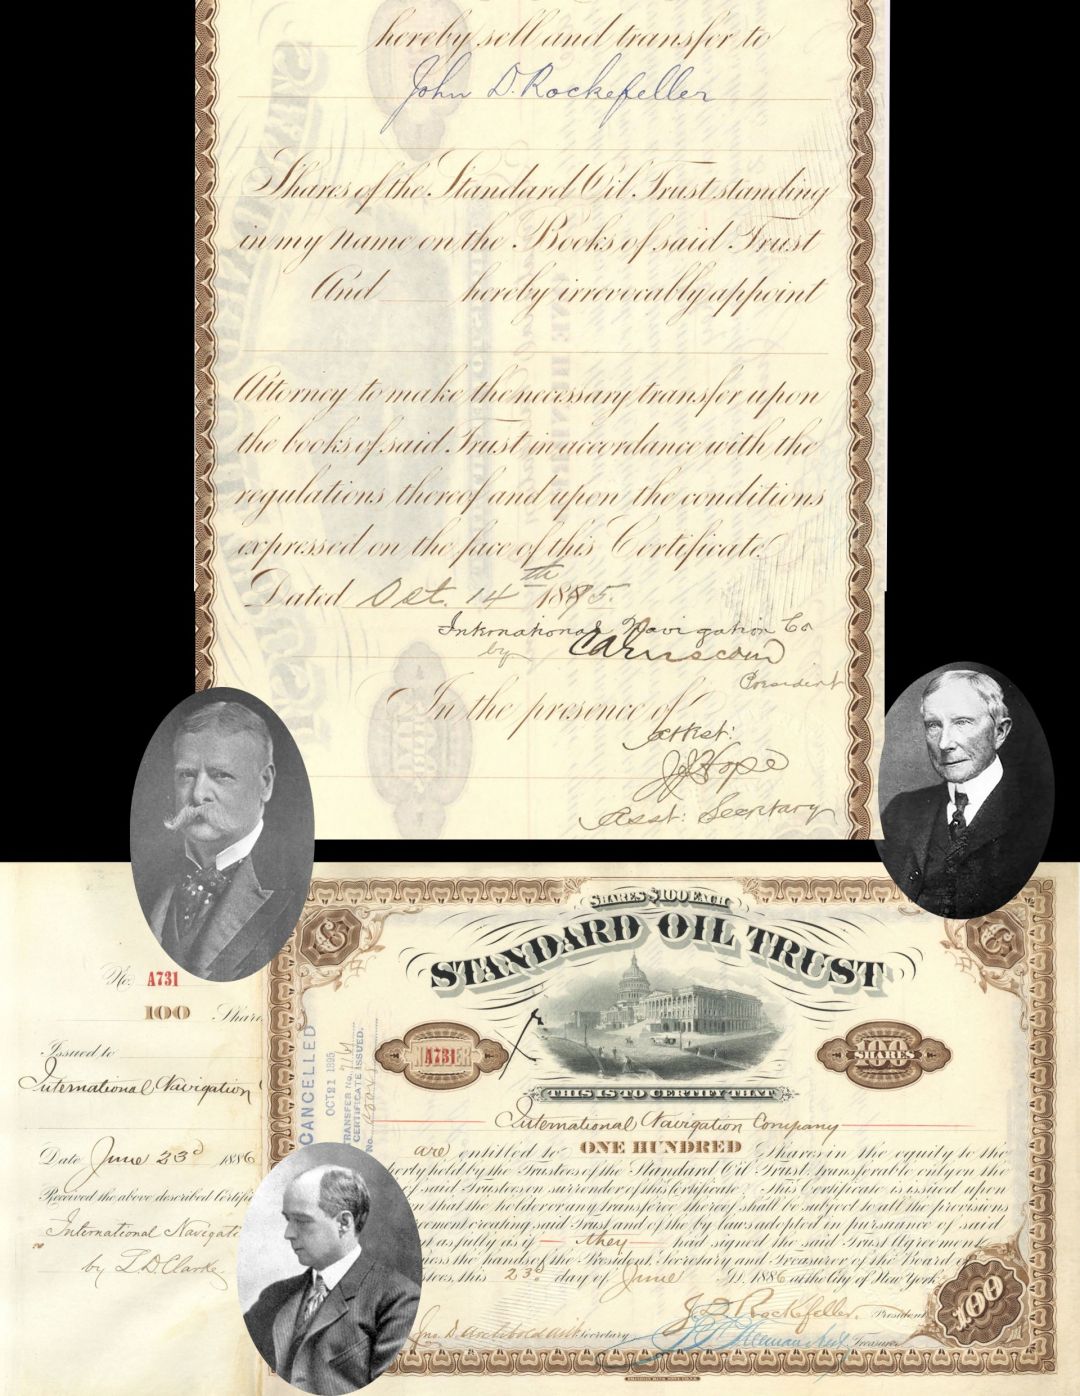 hereby sell and transfer to
John D. Rockefeller
Shares of the Standard Oil Trust standing
in my name on the Books of said Trust
And hereby irrevocably appoint
Attorney to make the necessary transfer upon
the books of said Trust in accordance with the
regulations thereof and upon the conditions
expressed on the face of this Certificate.
Dated Oct. 14th 1895.
International Navigation Co
by
President
In the presence of
Attest:
JJ Hope
Asst: Secretary
No. A731
100 Shares
Issued to
International Navigation
Date June 23d 1886
Received the above described Certific
International Navigati
by L D Clarke
CANCELLED
OCT 21 1895
TRANSFER No.
CERTIFICATE ISSUED.
No.
SHARES $100 EACH
STANDARD OIL TRUST
A731
100
SHARES
THIS IS TO CERTIFY THAT
International Navigation Company
are entitled to ONE HUNDRED Shares in the equity to the
erty held by the Trustees of the Standard Oil Trust, transferable only on the
f said Trustees on surrender of this Certificate. This Certificate is issued upon
n that the holder or any transferee thereof shall be subject to all the provisions
eement creating said Trust and of the by-laws adopted in pursuance of said
t as fully as if they had signed the said Trust Agreement.
ness the hands of the President, Secretary and Treasurer of the Board of
stees, this 23d day of June A.D. 1886 at the City of New York.
J D Rockefeller. President
Jno. D. Archbold Secretary
Treasurer
100